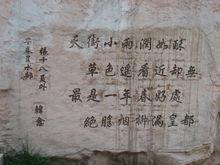 早春呈水部
張十八員外
韓愈
天街小雨潤如酥
草色遙看近却無
最是一年春好處
絕勝烟柳滿皇都